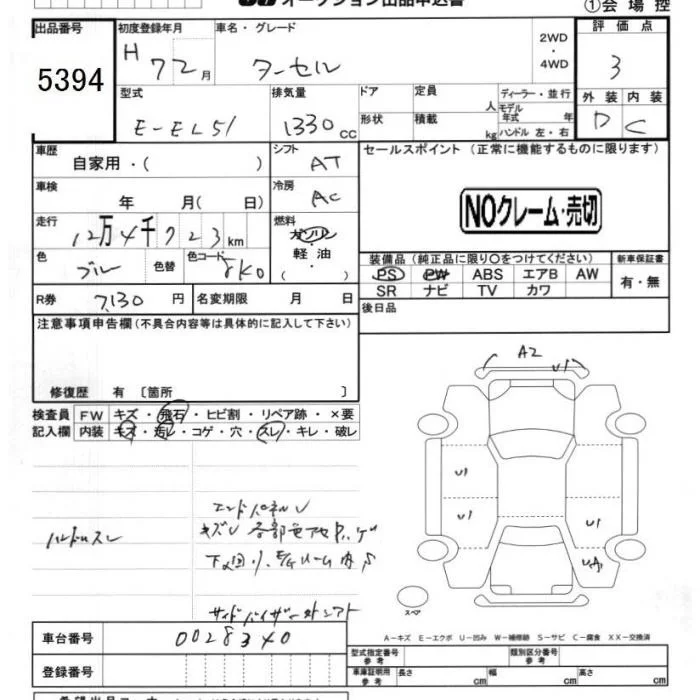 ①会場控
出品番号 初度登録年月 車名・グレード 2WD・4WD 評価点
5394 H 72月 ターセル 3
型式 排気量 ドア 定員 人 ディーラー・並行 外装 内装
E-EL51 1330cc 形状 積載 kg モデル年式 年 D C
ハンドル 左・右
車歴 自家用・( ) シフト AT セールスポイント (正常に機能するものに限ります)
車検 年 月( 日) 冷房 AC NOクレーム・売切
走行 12万4千723km 燃料 ガソリン
軽油・
( )
色 ブルー 色替 色コード 8K0 装備品(純正品に限り〇をつけてください) 新車保証書
PS PW ABS エアB AW 有・無
SR ナビ TV カワ
R券 7,130円 名変期限 月 日 後日品
注意事項申告欄(不具合内容等は具体的に記入して下さい)
修復歴 有〔箇所 〕
A2
U1
検査員 FW キズ・飛石・ヒビ割・リペア跡・×要
記入欄 内装 キズ・汚レ・コゲ・穴・スレ・キレ・破レ
U1
U1 U1
エンドパネルU
ハンドルスレ キズU 各部
サイドバイザー
スペア
車台番号 0028340
A-キズ E-エクボ U-凹み W-補修跡 S-サビ C-腐食 XX-交換済
登録番号 型式指定番号 参考 類別区分番号 参考
車庫証明用 参考 長さ cm 幅 cm 高さ cm